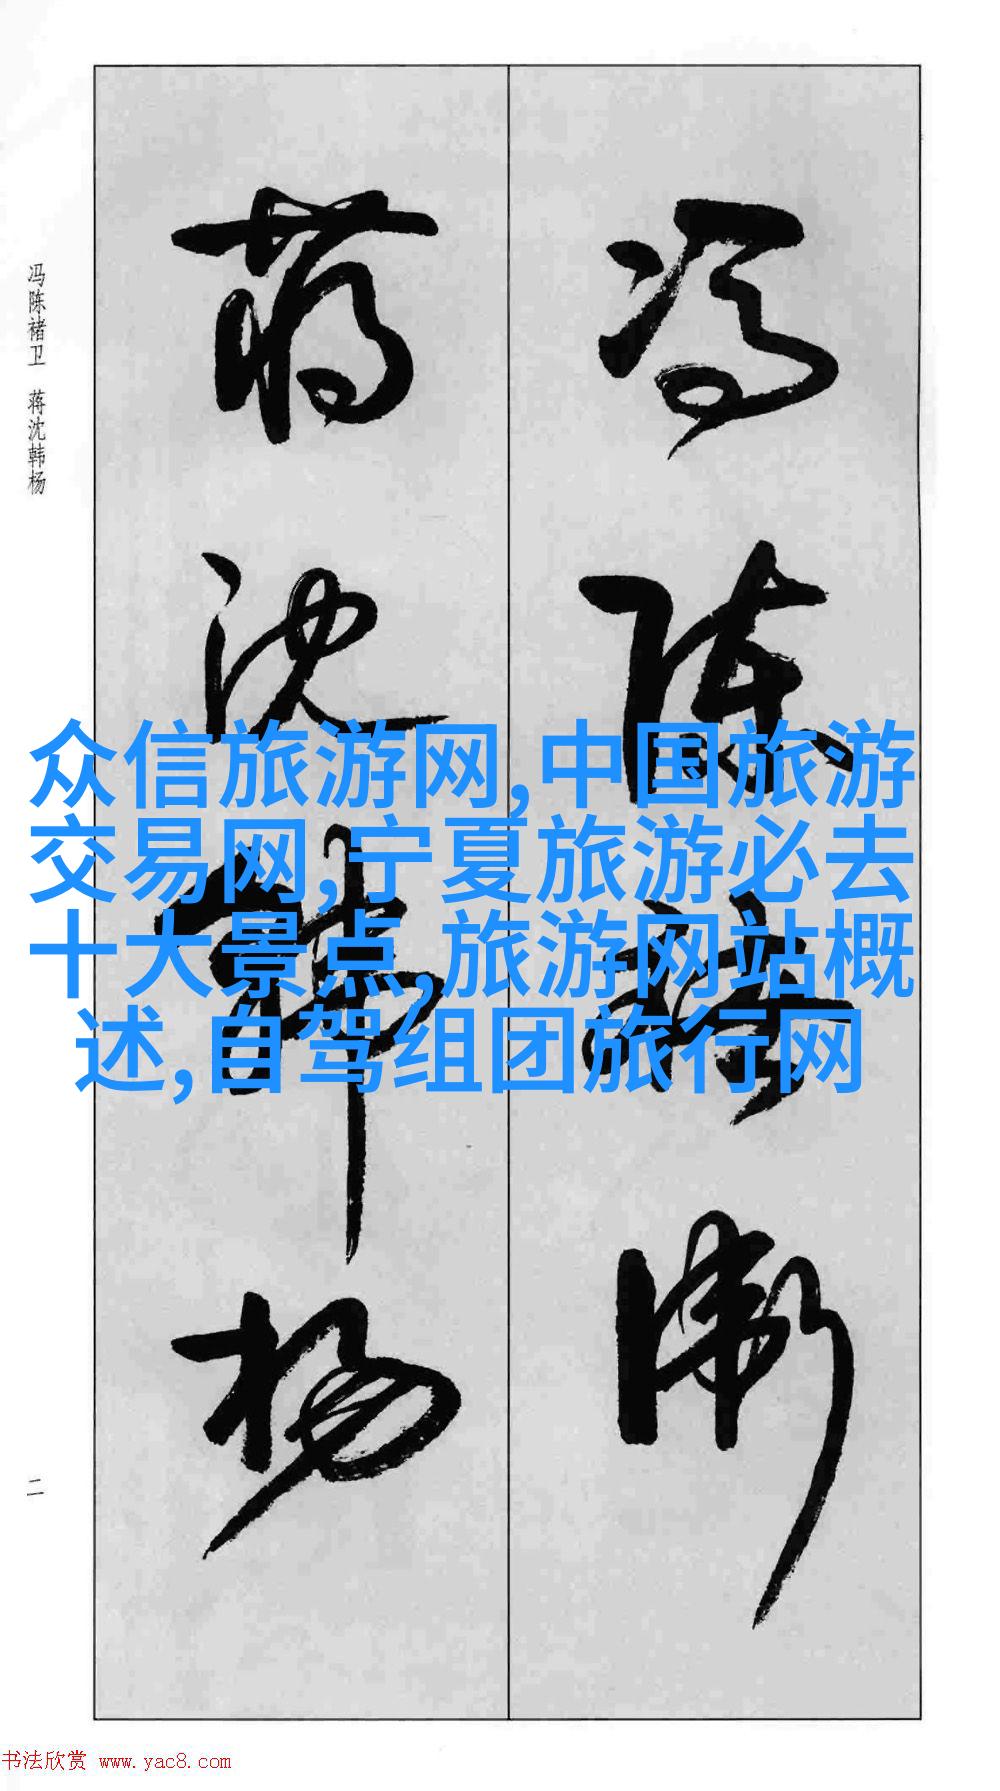 冯陈褚卫
蒋沈韩杨
冯陈褚卫 蒋沈韩杨
二
众信旅游网,中国旅游
交易网,宁夏旅游必去
十大景点,旅游网站概
述,自驾组团旅行网
书法欣赏 www.yac8.com